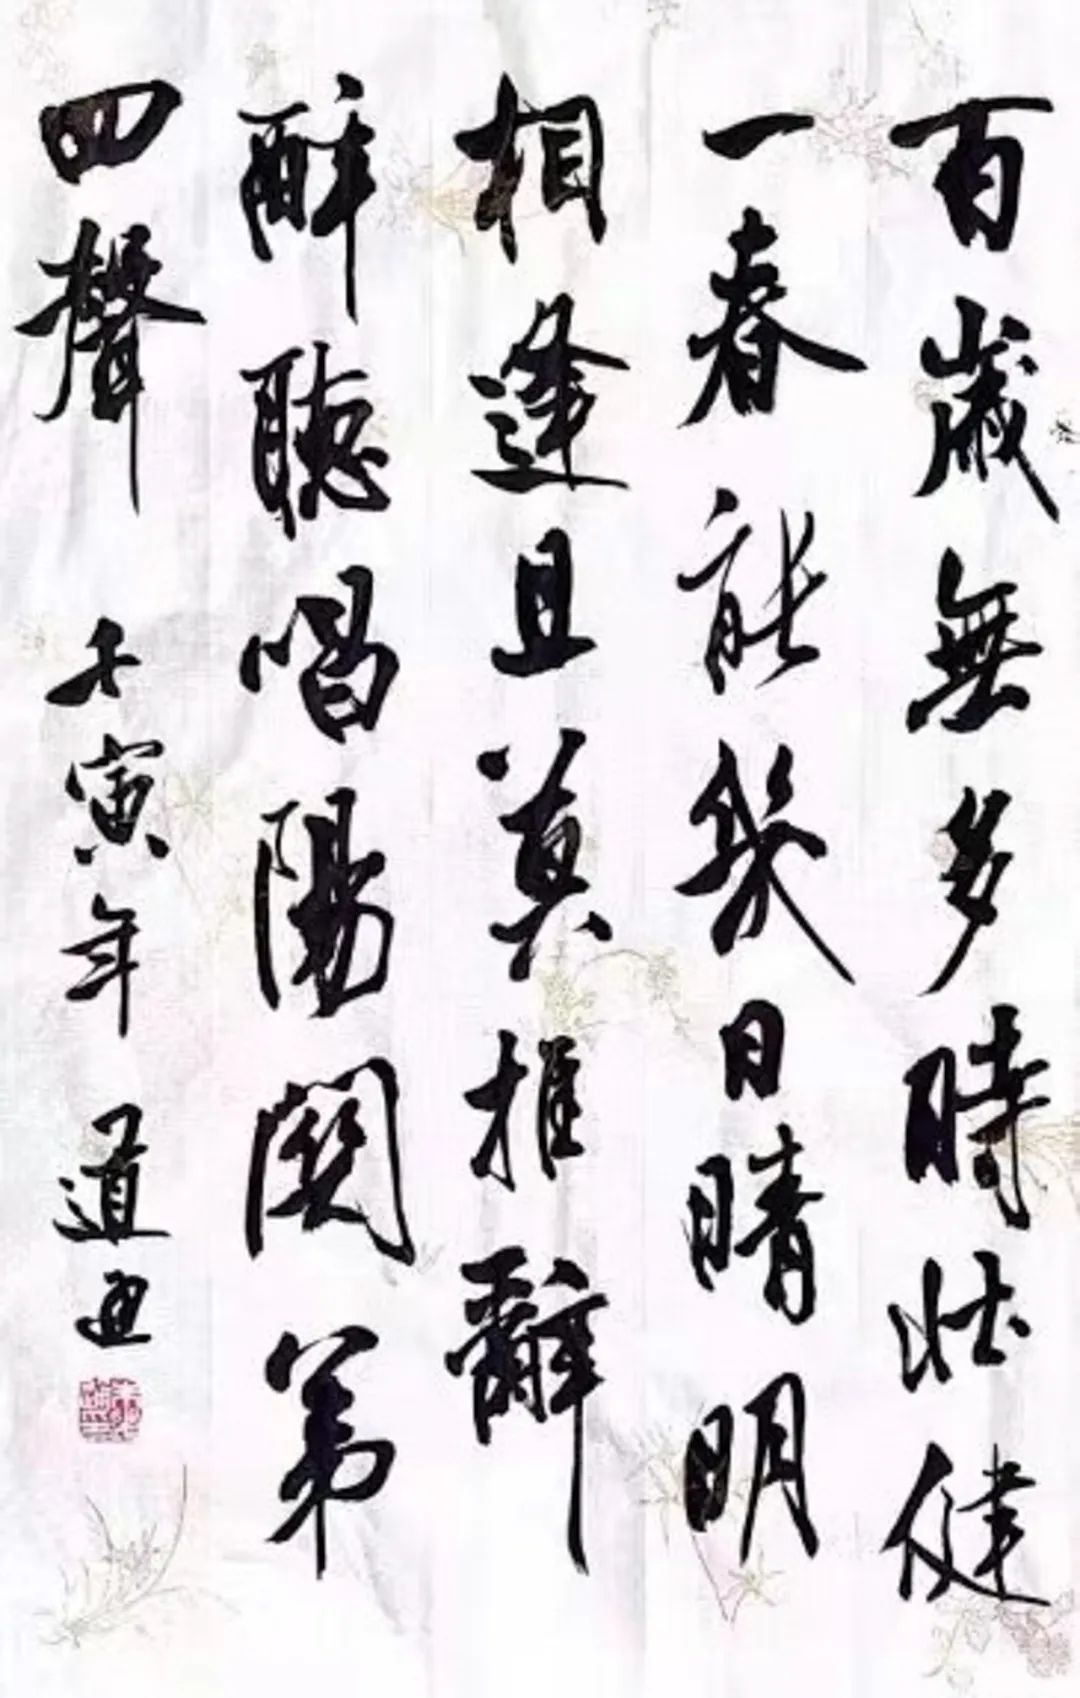 百歲無多時壯健
一春能幾日晴明
相逢且莫推辭
醉聽唱陽關第
四聲 壬寅年 道